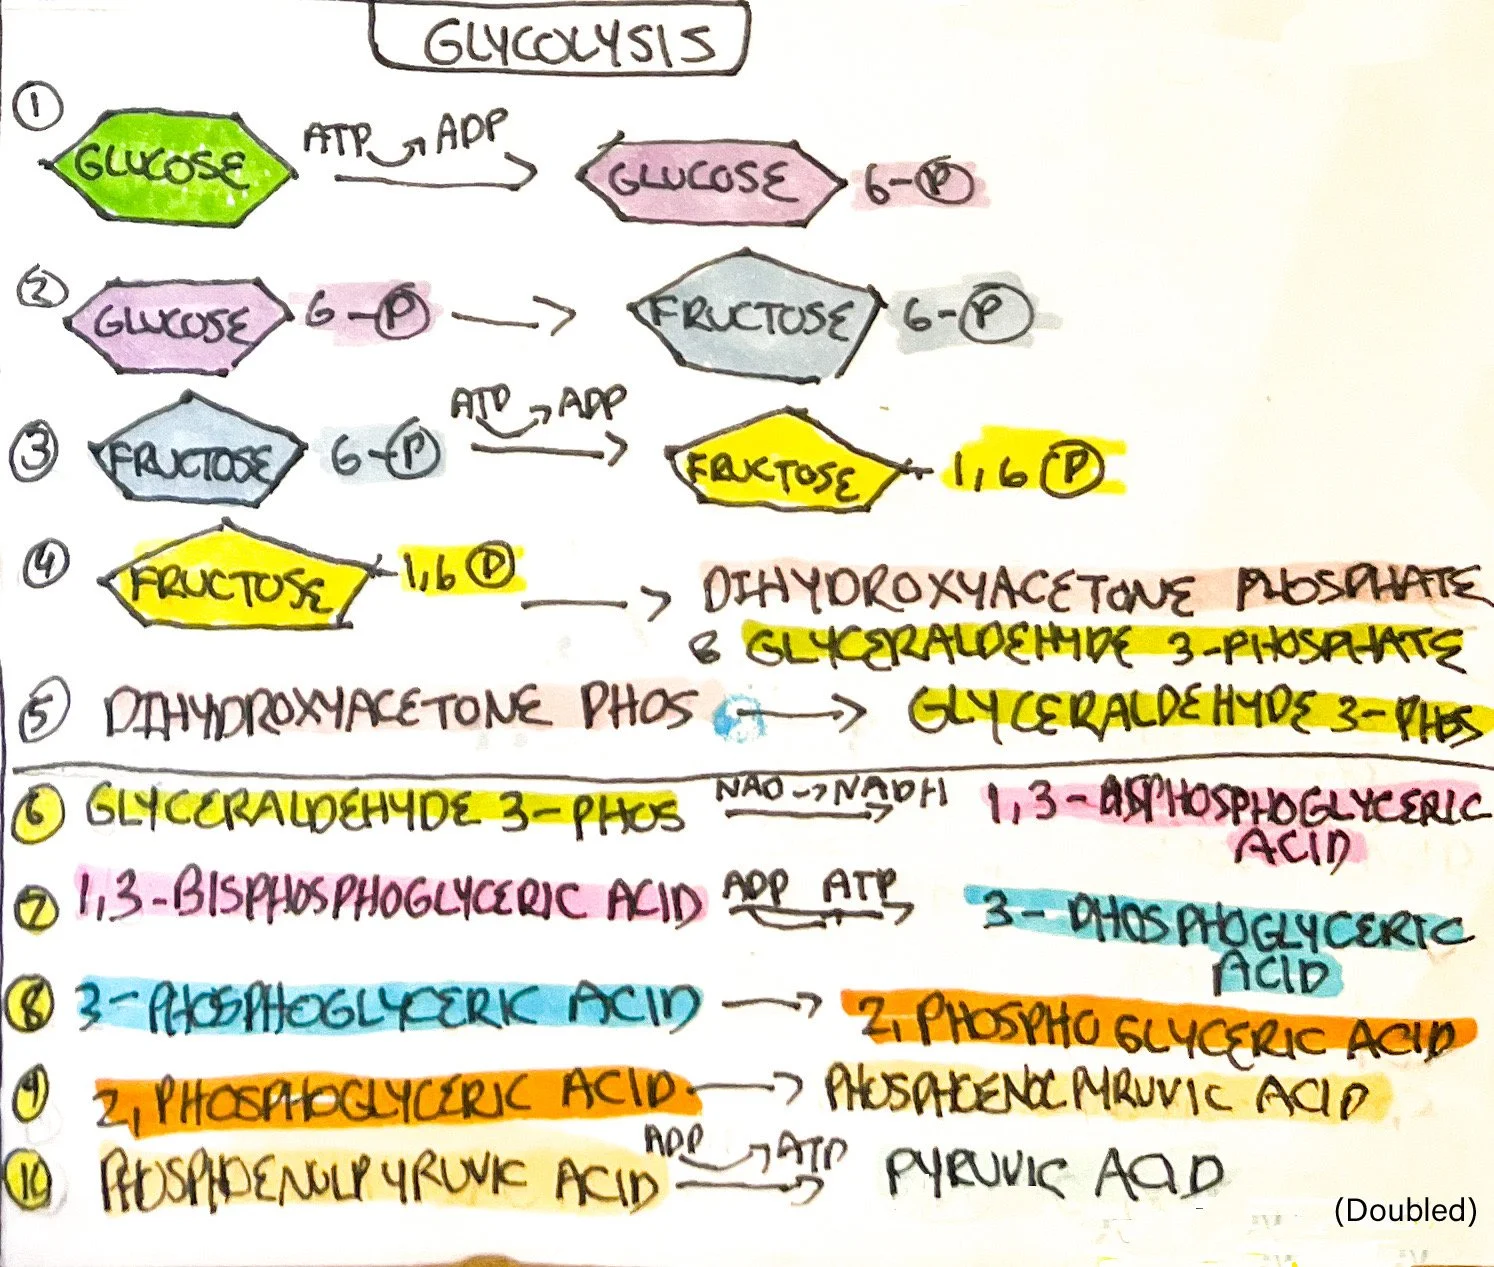 GLYCOLYSIS
① GLUCOSE ATP → ADP → GLUCOSE 6-Ⓟ
② GLUCOSE 6-Ⓟ → FRUCTOSE 6-Ⓟ
③ FRUCTOSE 6-Ⓟ ATP → ADP → FRUCTOSE 1,6 Ⓟ
④ FRUCTOSE 1,6 Ⓟ → DIHYDROXYACETONE PHOSPHATE
& GLYCERALDEHYDE 3-PHOSPHATE
⑤ DIHYDROXYACETONE PHOS → GLYCERALDEHYDE 3-PHOS
⑥ GLYCERALDEHYDE 3-PHOS NAD → NADH → 1,3-BISPHOSPHOGLYCERIC
ACID
⑦ 1,3-BISPHOSPHOGLYCERIC ACID ADP ATP → 3-PHOSPHOGLYCERIC
ACID
⑧ 3-PHOSPHOGLYCERIC ACID → 2, PHOSPHOGLYCERIC ACID
⑨ 2, PHOSPHOGLYCERIC ACID → PHOSPHOENOLPYRUVIC ACID
⑩ PHOSPHOENOLPYRUVIC ACID ADP → ATP → PYRUVIC ACID
(Doubled)